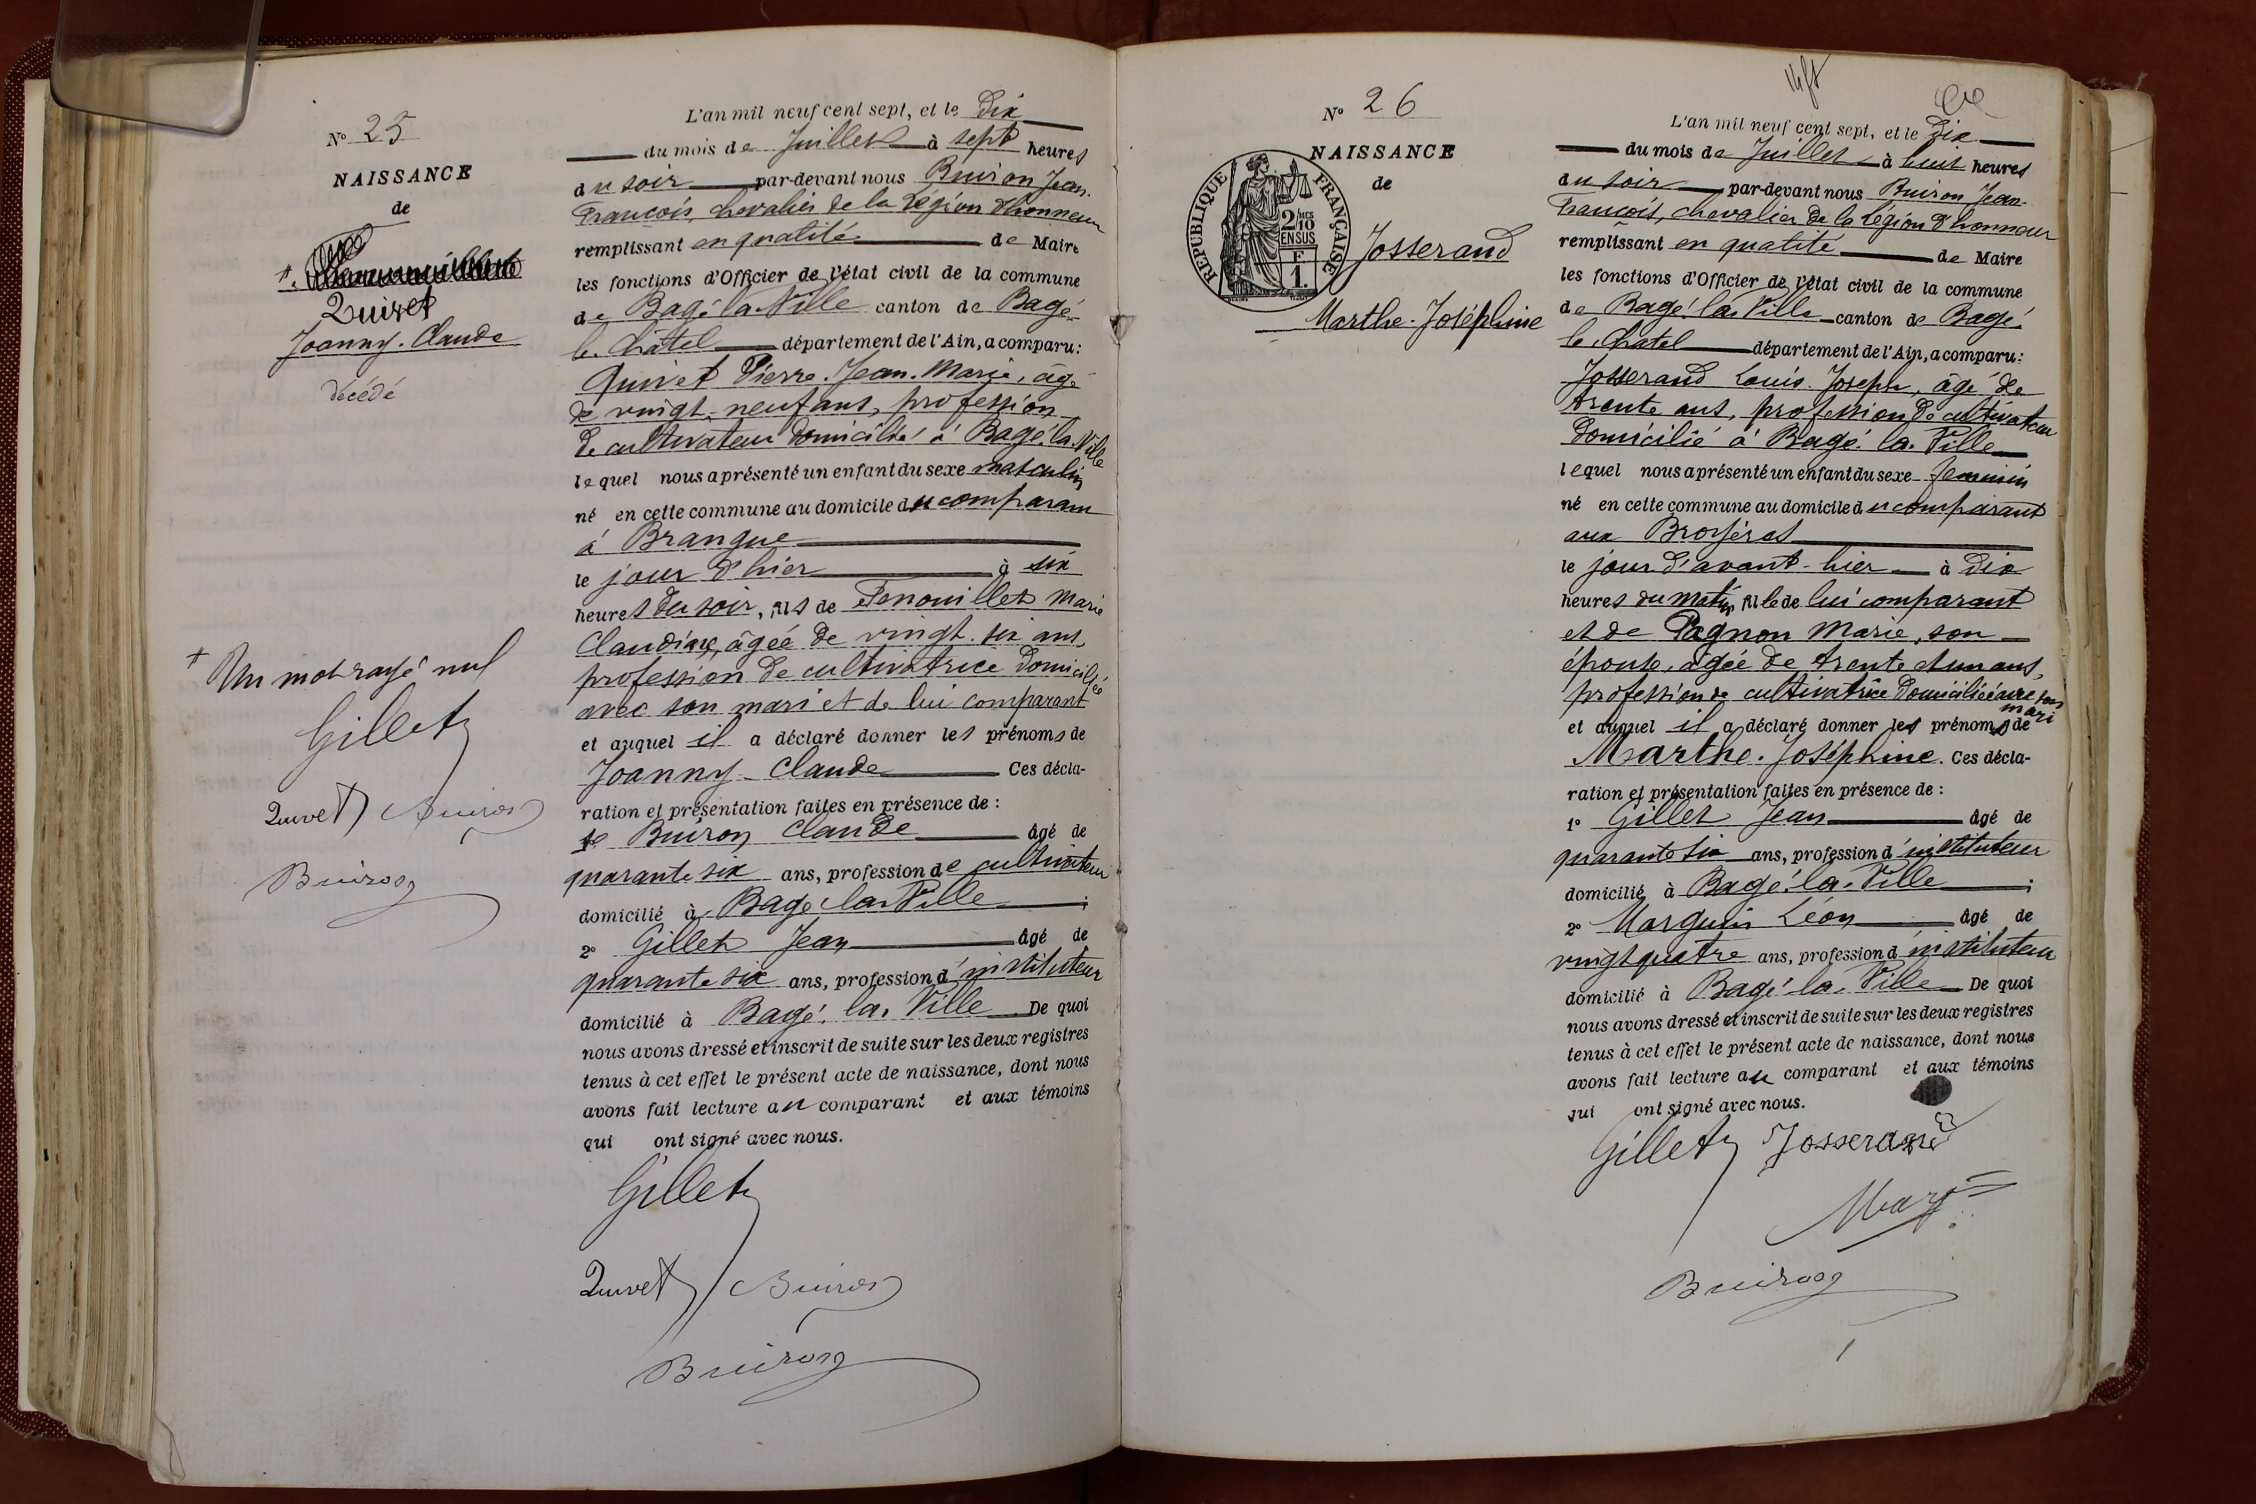 N° 25
NAISSANCE
de
Quivet
Joanny-Claude
décédé
+ Un mot rayé nul
Gillet
Quivet Buiron
Buiron
L'an mil neuf cent sept, et le Dix
du mois de Juillet à sept heures
du soir par-devant nous Buiron Jean-
François, chevalier de la Légion d'honneur
remplissant en qualité de Maire
les fonctions d'Officier de l'état civil de la commune
de Bagé-la-Ville canton de Bagé-
le-Châtel département de l'Ain, a comparu:
Quivet Pierre-Jean-Marie, âgé
de vingt-neuf ans, profession
de cultivateur domicilié à Bagé-la-Ville
lequel nous a présenté un enfant du sexe masculin
né en cette commune au domicile du comparant
à Brangue
le jour d'hier à six
heures du soir, fils de Fenouillet Marie
Claudine, âgée de vingt-six ans,
profession de cultivatrice domiciliée
avec son mari et de lui comparant
et auquel il a déclaré donner les prénoms de
Joanny-Claude Ces décla-
ration et présentation faites en présence de :
1° Buiron Claude âgé de
quarante six ans, profession de cultivateur
domicilié à Bagé-la-Ville ;
2° Gillet Jean âgé de
quarante six ans, profession d'instituteur
domicilié à Bagé-la-Ville De quoi
nous avons dressé et inscrit de suite sur les deux registres
tenus à cet effet le présent acte de naissance, dont nous
avons fait lecture au comparant et aux témoins
qui ont signé avec nous.
Gillet
Quivet Buiron
Buiron
N° 26
NAISSANCE
de
RÉPUBLIQUE FRANÇAISE
2/10
EN SUS
F
1.
Josserand
Marthe-Joséphine
L'an mil neuf cent sept, et le Dix
du mois de Juillet à huit heures
du soir par-devant nous Buiron Jean-
François, chevalier de la Légion d'honneur
remplissant en qualité de Maire
les fonctions d'Officier de l'état civil de la commune
de Bagé-la-Ville canton de Bagé-
le-Châtel département de l'Ain, a comparu:
Josserand Louis-Joseph, âgé de
trente ans, profession de cultivateur
domicilié à Bagé-la-Ville
lequel nous a présenté un enfant du sexe féminin
né en cette commune au domicile du comparant
aux Broyères
le jour d'avant-hier à dix
heures du matin, fille de lui comparant
et de Pagnon Marie, son
épouse, âgée de trente et un ans,
profession de cultivatrice domiciliée avec son
mari
et auquel il a déclaré donner les prénoms de
Marthe-Joséphine. Ces décla-
ration et présentation faites en présence de :
1° Gillet Jean âgé de
quarante six ans, profession d'instituteur
domicilié à Bagé-la-Ville ;
2° Marguin Léon âgé de
vingt quatre ans, profession d'instituteur
domicilié à Bagé-la-Ville De quoi
nous avons dressé et inscrit de suite sur les deux registres
tenus à cet effet le présent acte de naissance, dont nous
avons fait lecture au comparant et aux témoins
qui ont signé avec nous.
Gillet Josserand
Buiron